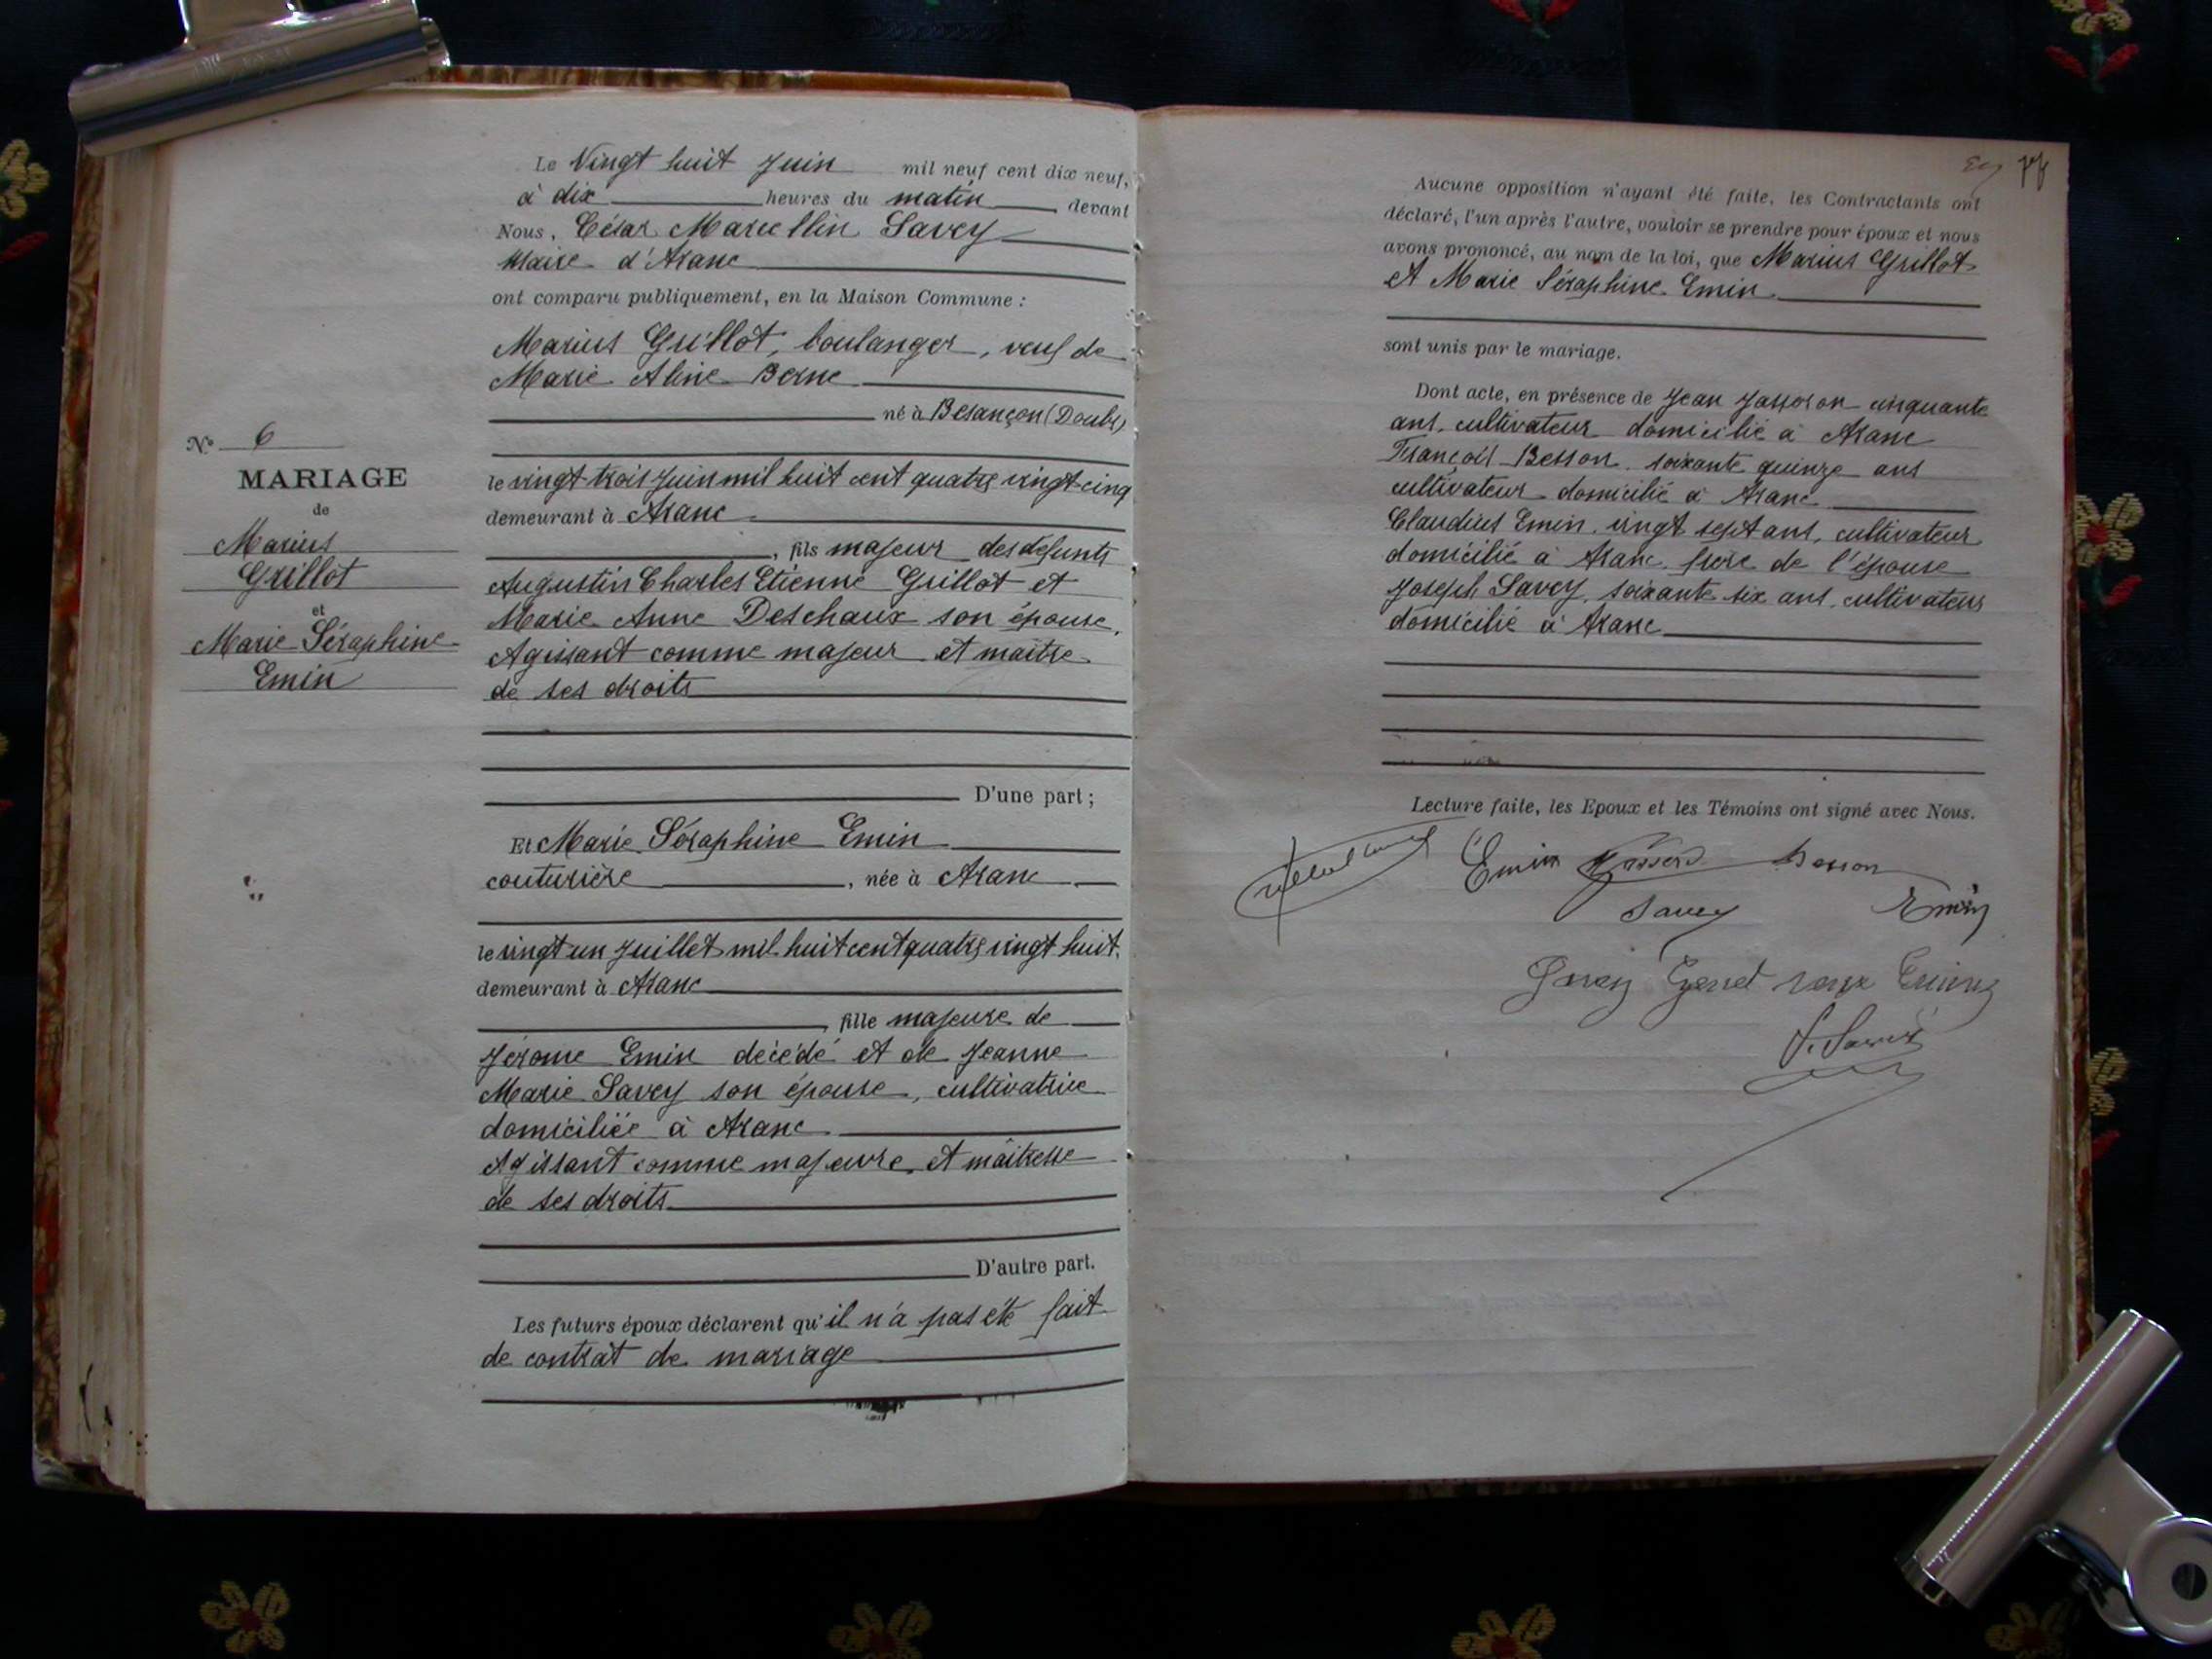 Le Vingt huit Juin mil neuf cent dix neuf,
à dix heures du matin devant
Nous, César Marcellin Savey
Maire d'Aranc
ont comparu publiquement, en la Maison Commune :
Marius Grillot, boulanger, veuf de
Marie Aline Berne
né à Besançon (Doubs)
le vingt trois Juin mil huit cent quatre vingt cinq
demeurant à Aranc
, fils majeur des défunts
Augustin Charles Etienne Grillot et
Marie Anne Deschaux son épouse,
Agissant comme majeur et maître
de ses droits
D'une part ;
Et Marie Séraphine Emin
couturière, née à Aranc
le vingt un Juillet mil huit cent quatre vingt huit,
demeurant à Aranc
, fille majeure de
Jérome Emin décédé et de Jeanne
Marie Savey son épouse, cultivatrice
domiciliée à Aranc
Agissant comme majeure et maîtresse
de ses droits
D'autre part.
Les futurs époux déclarent qu'il n'a pas été fait
de contrat de mariage
N° 6
MARIAGE
de
Marius
Grillot
et
Marie Séraphine
Emin
77
Aucune opposition n'ayant été faite, les Contractants ont
déclaré, l'un après l'autre, vouloir se prendre pour époux et nous
avons prononcé, au nom de la loi, que Marius Grillot
et Marie Séraphine Emin
sont unis par le mariage.
Dont acte, en présence de Jean Jasseron cinquante
ans, cultivateur domicilié à Aranc
François Besson, soixante quinze ans
cultivateur domicilié à Aranc
Claudius Emin, vingt sept ans, cultivateur
domicilié à Aranc frère de l'épouse
Joseph Savey, soixante six ans, cultivateur
domicilié à Aranc
Lecture faite, les Epoux et les Témoins ont signé avec Nous.
Emin Besson
Savey Emin